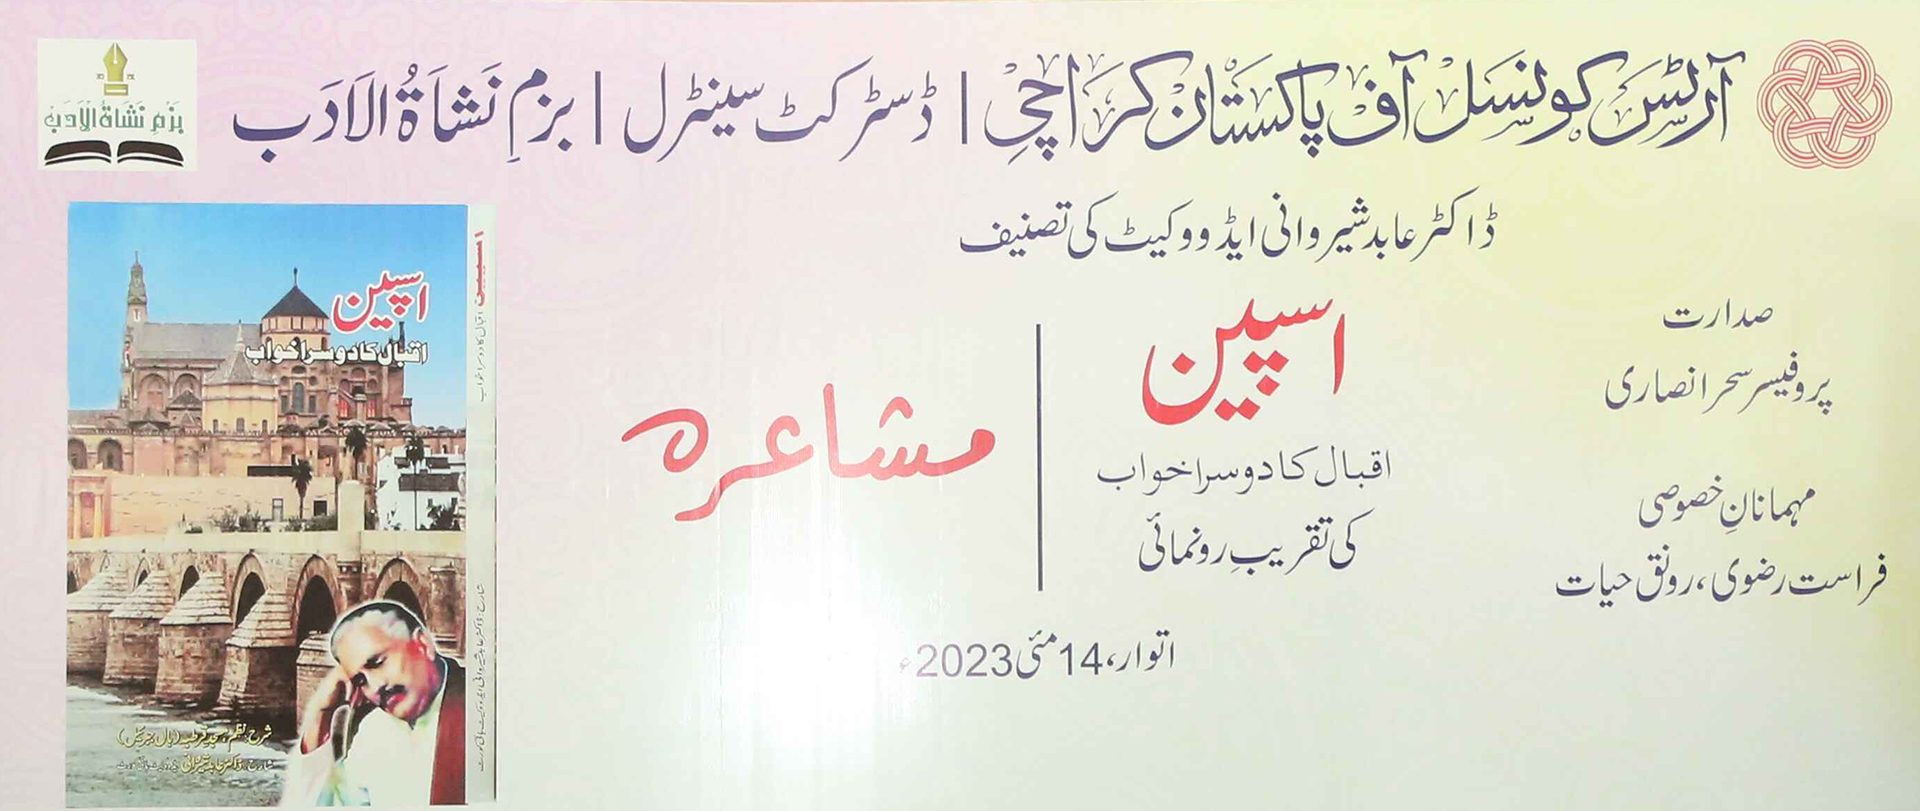 آرٹس کونسل آف پاکستان کراچی | ڈسٹرکٹ سینٹرل | بزمِ نَشاَۃُ الاَدَب
بَزمِ نَشَاۃُ الْاَدَبْ
ڈاکٹر عابد شیروانی ایڈووکیٹ کی تصنیف
صدارت
پروفیسر سحر انصاری
مہمانانِ خصوصی
فراست رضوی، رونق حیات
اسپین
اقبال کا دوسرا خواب
کی تقریبِ رونمائی
مشاعرہ
اتوار، 14 مئی 2023ء
اسپین
اقبال کا دوسرا خواب
شرح: نظم، مسجد قرطبہ (بال جبرئیل)
شارح: ڈاکٹر عابد شیروانی
اسپین اقبال کا دوسرا خواب